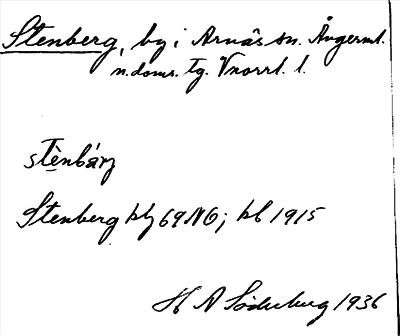 Stenberg, by i Arnäs sn. Ångerml.
n. doms. tg. Vnorrl. l.
stè̱nbárj
Stenberg kbl 69 NO; kb 1915
H A Söderberg 1936